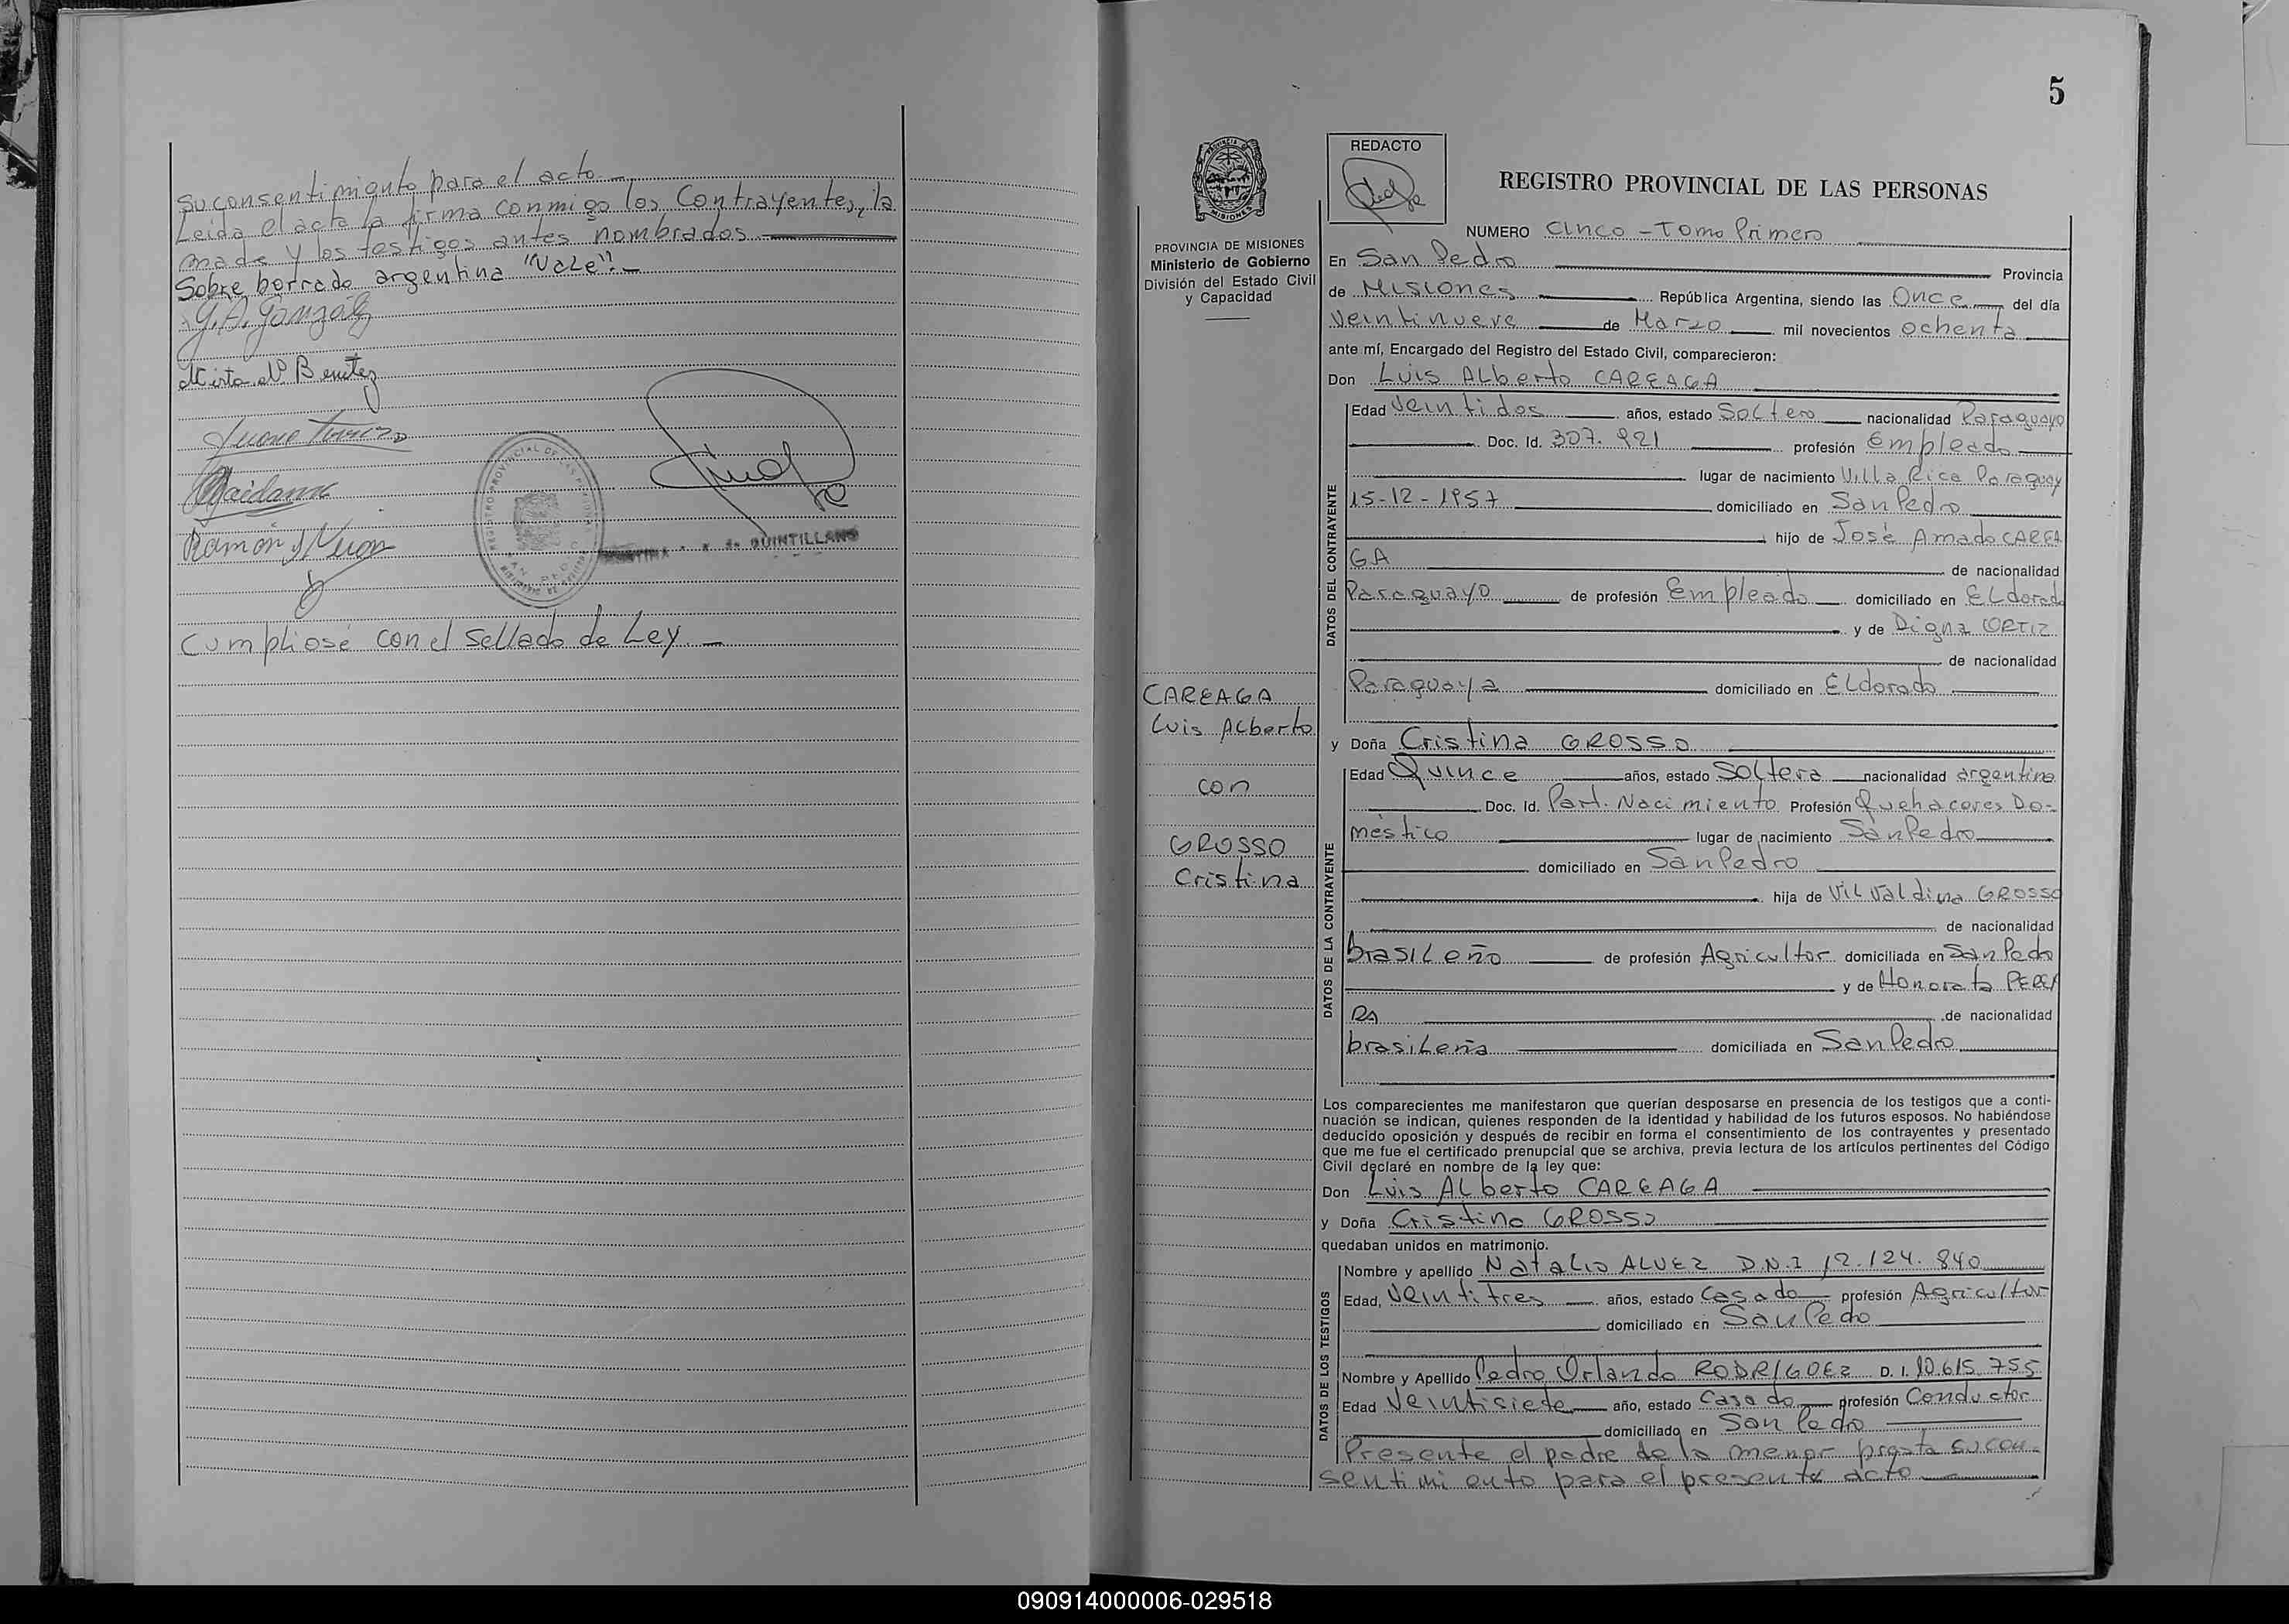 su consentimiento para el acto
Leida el acta la firma conmigo los Contrayentes, la
made y los testigos antes nombrados
Sobre borrado argentina "Vale".-
G. A. González
Mirta Nº Benitez
Ramón
REGISTRO PROVINCIAL DE LAS PERSONAS
QUINTILLANO
Cumpliose con el sellado de Ley.-
5
PROVINCIA DE MISIONES
Ministerio de Gobierno
División del Estado Civil
y Capacidad
CAREAGA
Luis Alberto
con
GROSSO
Cristina
REDACTO
REGISTRO PROVINCIAL DE LAS PERSONAS
NUMERO Cinco - Tomo Primero
En San Pedro Provincia
de Misiones República Argentina, siendo las Once del día
Veintinueve de Marzo mil novecientos ochenta
ante mí, Encargado del Registro del Estado Civil, comparecieron:
Don Luis Alberto CAREAGA
DATOS DEL CONTRAYENTE
Edad Veintidos años, estado Soltero nacionalidad Paraguayo
Doc. Id. 307.921 profesión Empleado
lugar de nacimiento Villa Rica Paraguay
15-12-1957 domiciliado en San Pedro
hijo de José Amado CAREA
GA de nacionalidad
Paraguayo de profesión Empleado domiciliado en Eldorado
y de Digna ORTIZ
de nacionalidad
Paraguaya domiciliado en Eldorado
y Doña Cristina GROSSO
DATOS DE LA CONTRAYENTE
Edad Quince años, estado Soltera nacionalidad argentina
Doc. Id. Part. Nacimiento Profesión Quehaceres Do-
méstico lugar de nacimiento San Pedro
domiciliado en San Pedro
hija de Vilvaldina GROSSO
de nacionalidad
brasileño de profesión Agricultor domiciliada en San Pedro
y de Honorata PEREI
RA de nacionalidad
brasileña domiciliada en San Pedro
Los comparecientes me manifestaron que querían desposarse en presencia de los testigos que a conti-
nuación se indican, quienes responden de la identidad y habilidad de los futuros esposos. No habiéndose
deducido oposición y después de recibir en forma el consentimiento de los contrayentes y presentado
que me fue el certificado prenupcial que se archiva, previa lectura de los artículos pertinentes del Código
Civil declaré en nombre de la ley que:
Don Luis Alberto CAREAGA
y Doña Cristina GROSSO
quedaban unidos en matrimonio.
DATOS DE LOS TESTIGOS
Nombre y apellido Natalio ALVEZ D.N.I 12.124.840
Edad, Veintitres años, estado Casado profesión Agricultor
domiciliado en San Pedro
Nombre y Apellido Pedro Orlando RODRIGUEZ D. I. 10.615.755
Edad Veintisiete año, estado Casado profesión Conductor
domiciliado en San Pedro
Presente el padre de la menor presta su con-
sentimiento para el presente acto
090914000006-029518